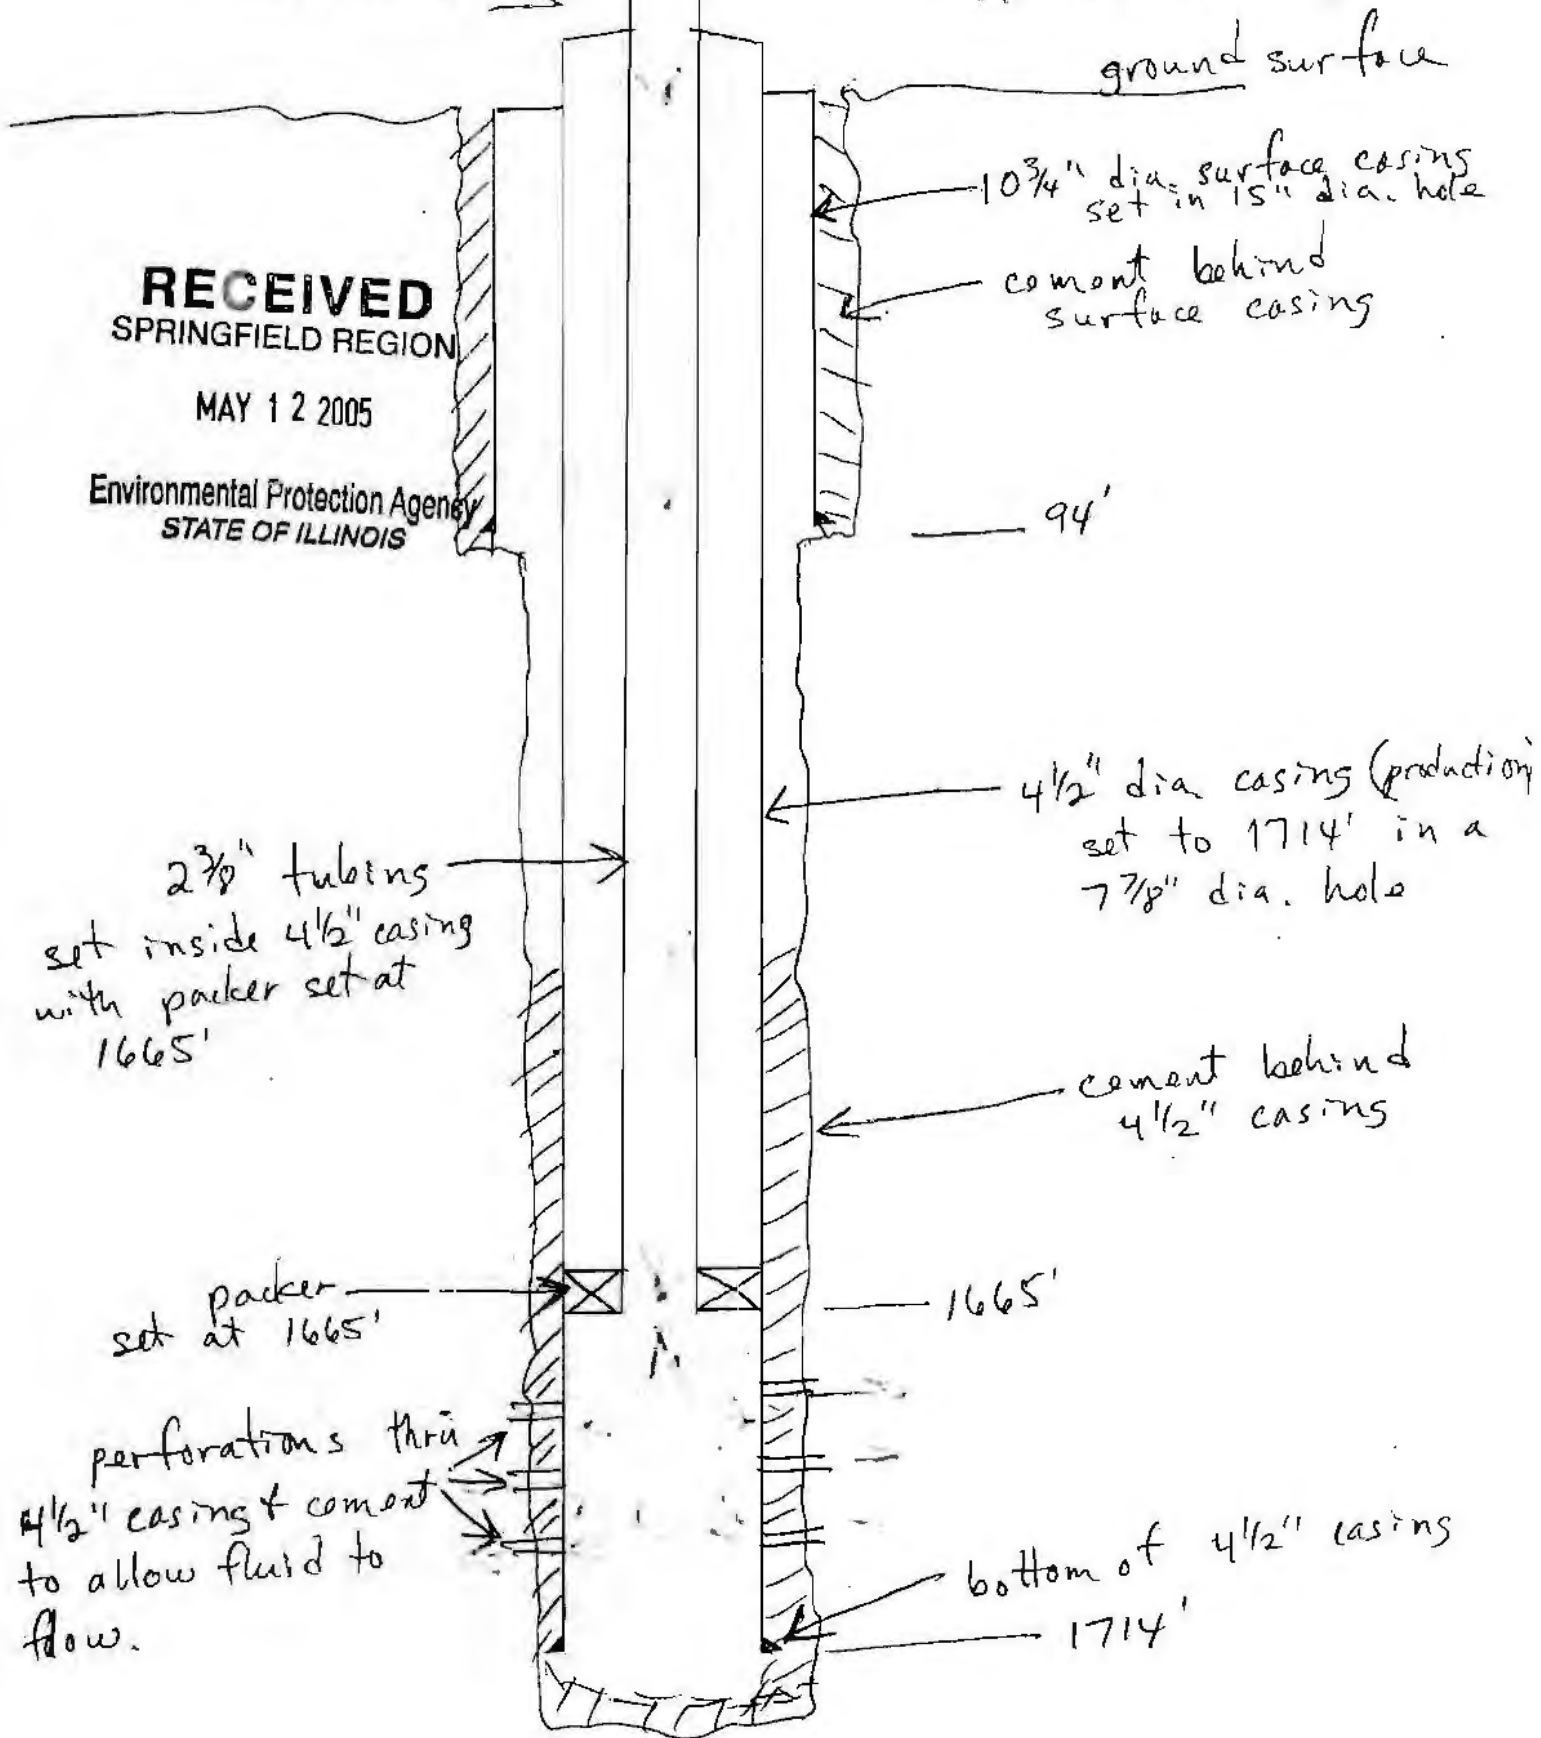 ground surface
10 3/4" dia. surface casing
set in 15" dia. hole
cement behind
surface casing
RECEIVED
SPRINGFIELD REGION
MAY 12 2005
Environmental Protection Agency
STATE OF ILLINOIS
94'
4 1/2" dia casing (production)
set to 1714' in a
7 7/8" dia. hole
2 3/8" tubing
set inside 4 1/2" casing
with packer set at
1665'
cement behind
4 1/2" casing
packer
set at 1665'
1665'
perforations thru
4 1/2" casing & cement
to allow fluid to
flow.
bottom of 4 1/2" casing
1714'